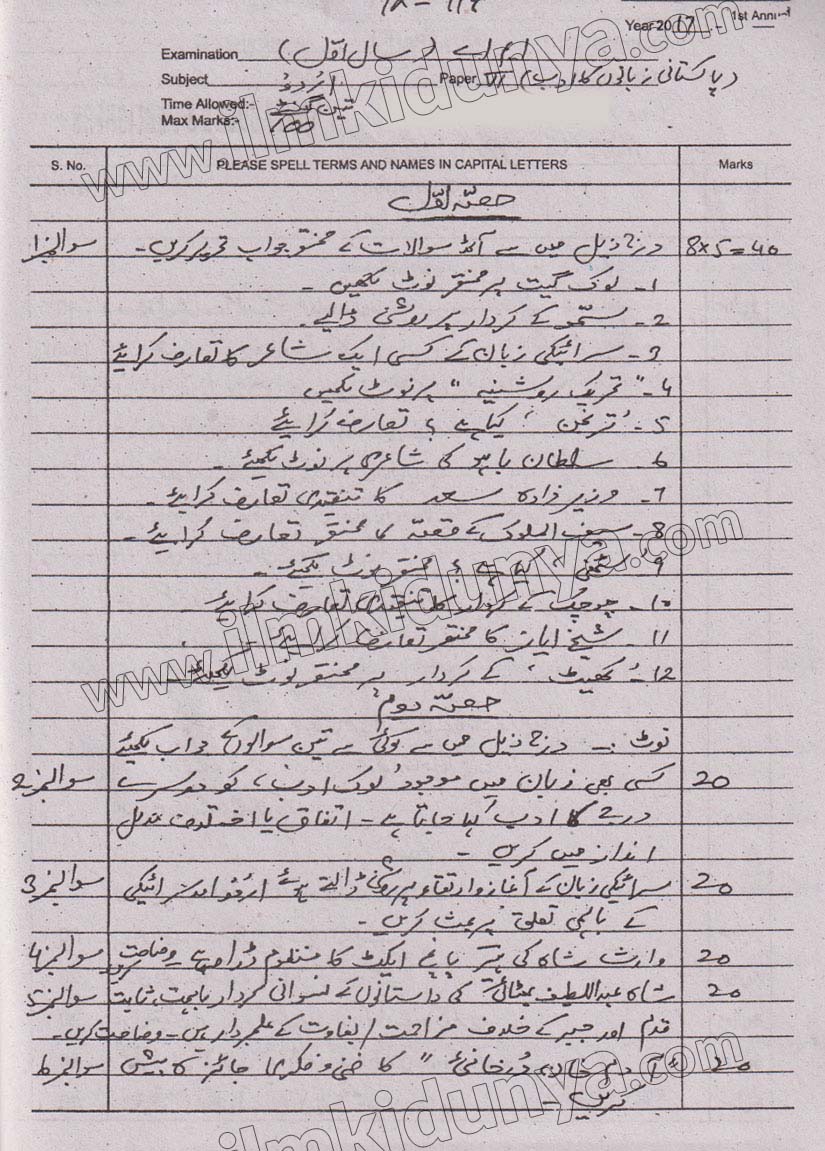 Year 2017 1st Annual
Examination ایم اے (سال اول)
Subject اردو Paper VI (پاکستانی زبانوں کا ادب)
Time Allowed:- تین گھنٹے
Max Marks:- 100
www.ilmkidunya.com
S. No. PLEASE SPELL TERMS AND NAMES IN CAPITAL LETTERS Marks
حصہ اول
سوال نمبر 1 درج ذیل میں سے آٹھ سوالات کے مختصر جواب تحریر کریں۔ 8x5=40
1۔ لوک گیت پر مختصر نوٹ لکھیں۔
2۔ کے کردار پر روشنی ڈالیے۔
3۔ سرائیکی زبان کے کسی ایک شاعر کا تعارف کرائیے
4۔ "تحریک روشنیہ" پر نوٹ لکھیں
5۔ کیا ہے؟ تعارف کرائیے
6۔ سلطان باہو کی شاعری پر نوٹ لکھیئے۔
7۔ وزیر زادہ سعد کا تنقیدی تعارف کرایئے۔
8۔ سیف الملوک کے قصہ کا مختصر تعارف کرایئے۔
9۔ کیا ہے؟ مختصر نوٹ لکھیئے۔
10۔ چوچک کے کردار کا تنقیدی تعارف کرایئے
11۔ شیخ ایاز کا مختصر تعارف کرایئے۔
12۔ 'کھیڑے' کے کردار پر مختصر نوٹ لکھیئے
www.ilmkidunya.com
حصہ دوم
نوٹ :- درج ذیل میں سے کوئی سے تین سوالوں کے جواب لکھیئے
سوال نمبر 2 کسی بھی زبان میں موجود 'لوک ادب' کو دوسرے 20
درجے کا ادب کہا جاتا ہے۔ اتفاق یا اختلاف مدلل
انداز میں کریں۔
سوال نمبر 3 سرائیکی زبان کے آغاز و ارتقاء پر روشنی ڈالتے ہوئے اردو اور سرائیکی 20
کے باہمی تعلق پر بحث کریں۔
سوال نمبر 4 وارث شاہ کی ہیر پانچ ایکٹ کا منظوم ڈراما ہے۔ وضاحت کریں 20
سوال نمبر 5 شاہ عبداللطیف بھٹائی کی داستانوں کے نسوانی کردار باہمت، ثابت 20
قدم اور جبر کے خلاف مزاحمت / بغاوت کے علمبردار ہیں۔ وضاحت کریں۔
سوال نمبر 6 "آدم خان درخانئی" کا فنی و فکری جائزہ پیش 20
کریں۔
www.ilmkidunya.com
ilmkidunya.com